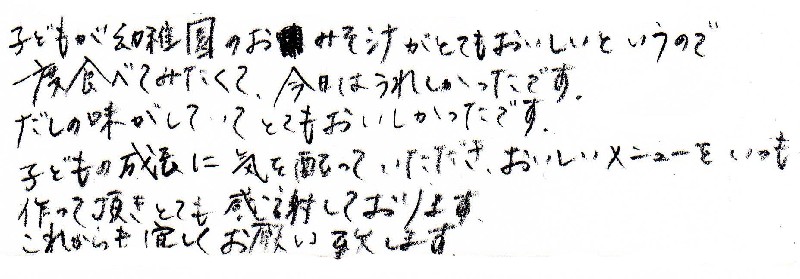 子どもが幼稚園のおみそ汁がとてもおいしいというので
一度食べてみたくて、今日はうれしかったです。
だしの味がしていてとてもおいしかったです。
子どもの成長に気を配っていただき、おいしいメニューをいつも
作って頂きとても感謝しております。
これからも宜しくお願い致します。